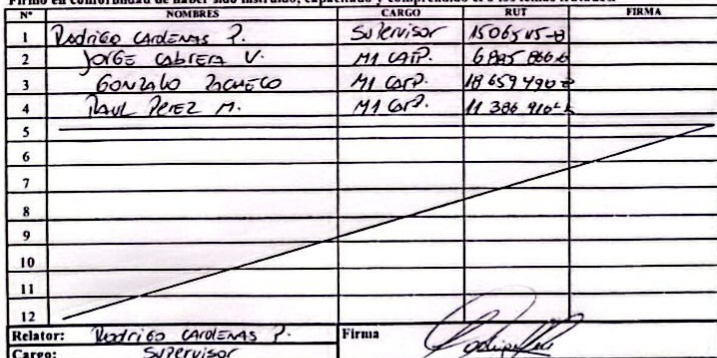 Firmo en conformidad de haber sido instruido, capacitado y comprendido el o los temas tratados.
Nº NOMBRES CARGO RUT FIRMA
1 Rodrigo Cardenas P. Supervisor
2 Jorge Cabrera V. M1 Carp.
3 Gonzalo Pacheco M1 Carp. 18 659 490
4 Raul Perez M. M1 Carp. 11 386 910-k
5
6
7
8
9
10
11
12
Relator: Rodrigo Cardenas P. Firma
Cargo: Supervisor